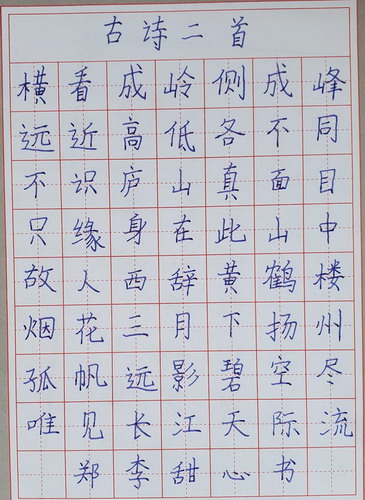 古诗二首
横看成岭侧成峰
远近高低各不同
不识庐山真面目
只缘身在此山中
故人西辞黄鹤楼
烟花三月下扬州
孤帆远影碧空尽
唯见长江天际流
郑李甜心书